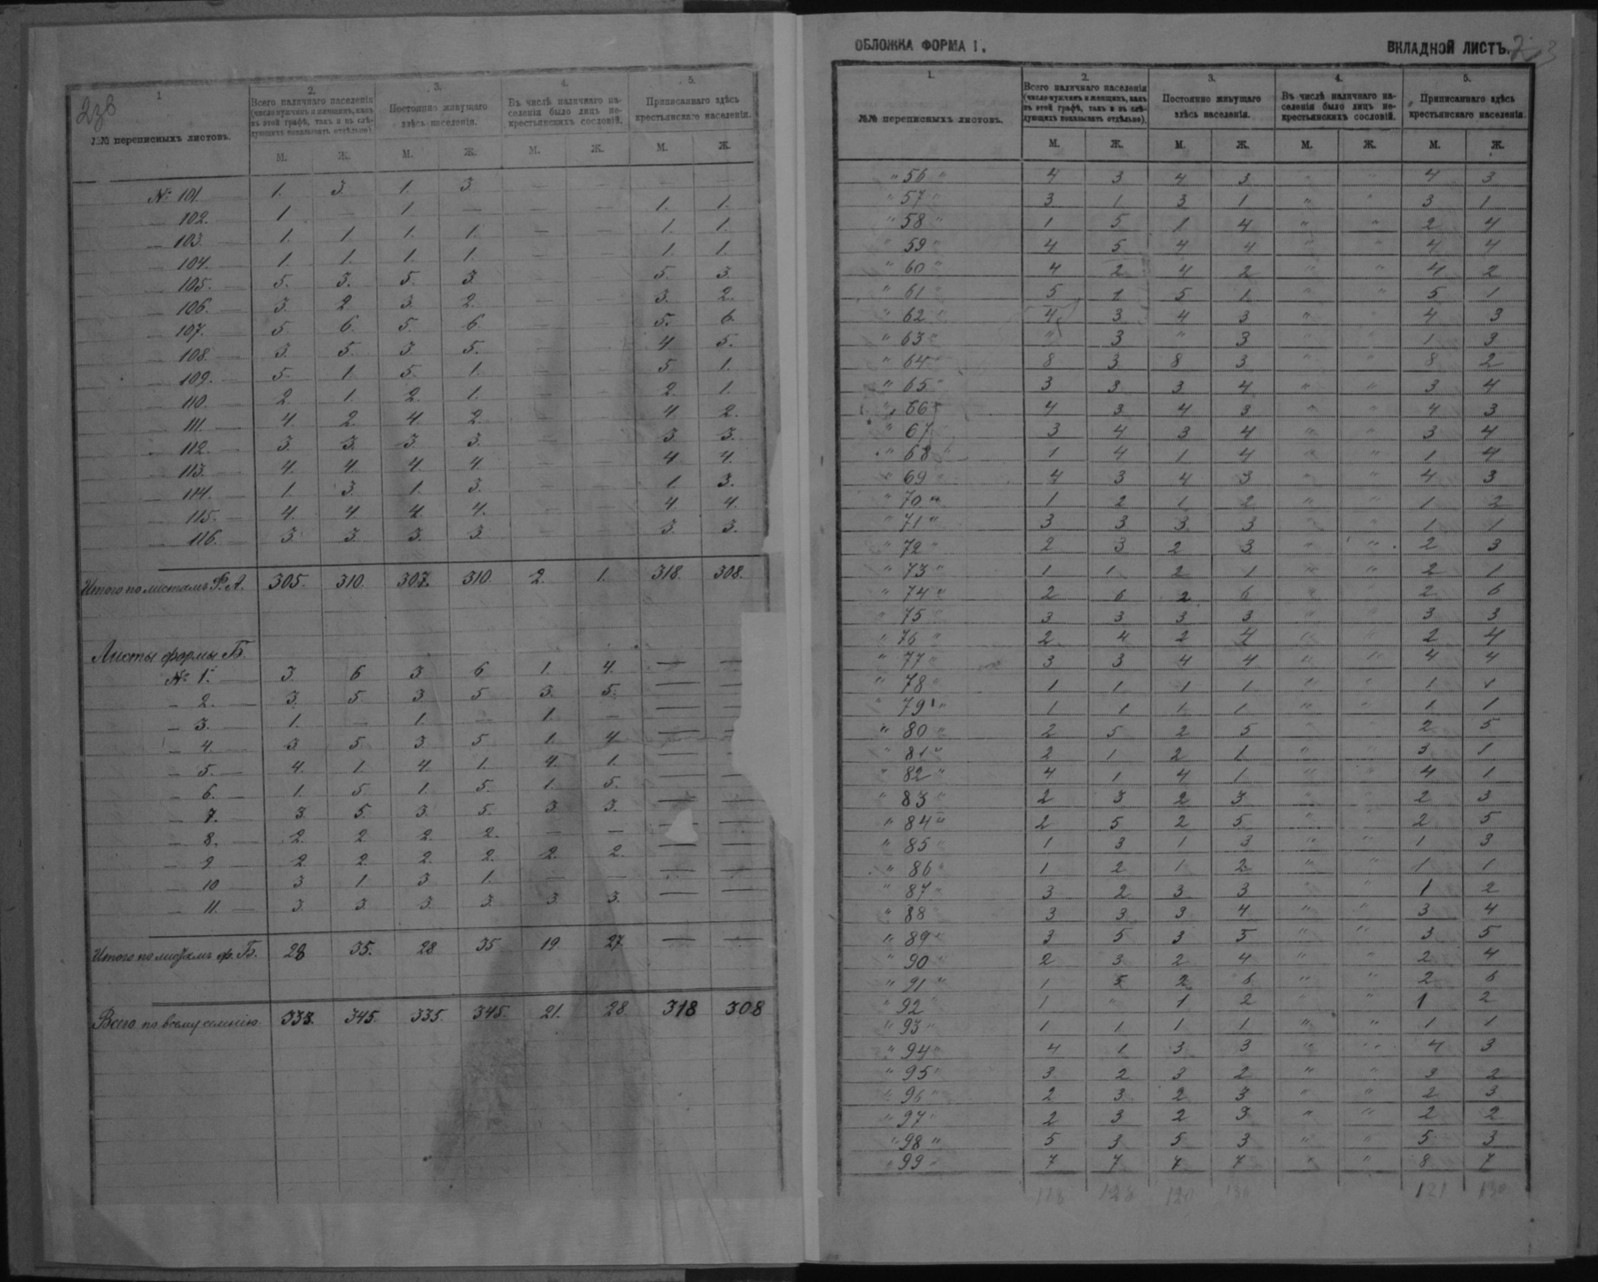 1.
2.
3.
4.
5.
№№ переписныхъ листовъ.
Всего наличнаго населенія (число мужчинъ и женщинъ, какъ въ этой графѣ, такъ и въ слѣдующихъ показывать отдѣльно).
Постоянно живущаго здѣсь населенія.
Въ числѣ наличнаго населенія было лицъ некрестьянскихъ сословій.
Приписаннаго здѣсь крестьянскаго населенія.
М. Ж. М. Ж. М. Ж. М. Ж.
№ 101. 1. 3 1. 3 — —
102. 1 — 1. — — — 1. 1.
103. 1. 1. 1. 1. — — 1. 1.
104. 1. 1. 1. 1. — — 1. 1.
105. 5. 3. 5. 3 — — 5. 3.
106. 3. 2 3. 2. — — 3. 2.
107. 5 6. 5. 6 — — 5. 6.
108. 3. 5. 3. 5. — — 4 5.
109. 5. 1. 5. 1. — — 5. 1.
110. 2. 1 2. 1. — — 2. 1.
111. 4. 2. 4. 2. — — 4 2.
112. 3. 3. 3. 3. — — 3 3.
113. 4. 4. 4. 4. — — 4 4.
114. 1. 3. 1. 3. — — 1. 3.
115. 4. 4 4. 4. — — 4 4.
116. 3. 3. 3. 3 — — 3. 3.
Итого по листамъ Ф. А. 305. 310. 307. 310 2. 1. 318. 308.
Листы формы Б.
№ 1. 3. 6 3 6 1. 4. — —
2. 3. 5 3 5 3. 5. — —
3. 1. — 1. — 1. — — —
4. 3 5. 3. 5 1. 4 — —
5. 4. 1. 4. 1. 4. 1. — —
6. 1. 5 1. 5. 1. 5. — —
7. 3. 5. 3. 5. 3 3. — —
8. 2. 2. 2. 2. — — — —
9 2. 2. 2. 2. 2. 2. — —
10 3 1. 3 1. — — — —
11. 3. 3. 3. 3 3 3. — —
Итого по листамъ ф. Б. 28 35. 28 35 19 27 — —
Всего по всему селенію 333. 345. 335. 345. 21. 28 318 308
ОБЛОЖКА ФОРМА I.
ВКЛАДНОЙ ЛИСТЪ.
1.
2.
3.
4.
5.
№№ переписныхъ листовъ.
Всего наличнаго населенія (число мужчинъ и женщинъ, какъ въ этой графѣ, такъ и въ слѣдующихъ показывать отдѣльно).
Постоянно живущаго здѣсь населенія.
Въ числѣ наличнаго населенія было лицъ некрестьянскихъ сословій.
Приписаннаго здѣсь крестьянскаго населенія.
М. Ж. М. Ж. М. Ж. М. Ж.
" 56 " 4 3 4 3 " " 4 3
" 57 " 3 1 3 1 " " 3 1
" 58 " 1 5 1 4 " " 2 4
" 59 " 4 5 4 4 " " 4 4
" 60 " 4 2 4 2 " " 4 2
" 61 " 5 1 5 1 " " 5 1
" 62 " 4 3 4 3 " " 4 3
" 63 " " 3 " 3 " " 1 3
" 64 " 8 3 8 3 " " 8 2
" 65 " 3 3 3 4 " " 3 4
" 66 " 4 3 4 3 " " 4 3
" 67 " 3 4 3 4 " " 3 4
" 68 " 1 4 1 4 " " 1 4
" 69 " 4 3 4 3 " " 4 3
" 70 " 1 2 1 2 " " 1 2
" 71 " 3 3 3 3 " " 1 1
" 72 " 2 3 2 3 " " 2 3
" 73 " 1 1 2 1 " " 2 1
" 74 " 2 6 2 6 " " 2 6
" 75 " 3 3 3 3 " " 3 3
" 76 " 2 4 2 4 " " 2 4
" 77 " 3 3 4 4 " " 4 4
" 78 " 1 1 1 1 " " 1 1
" 79 " 1 1 1 1 " " 1 1
" 80 " 2 5 2 5 " " 2 5
" 81 " 2 1 2 1 " " 3 1
" 82 " 4 1 4 1 " " 4 1
" 83 " 2 3 2 3 " " 2 3
" 84 " 2 5 2 5 " " 2 5
" 85 " 1 3 1 3 " " 1 3
" 86 " 1 2 1 2 " " 1 1
" 87 " 3 2 3 3 " " 1 2
" 88 " 3 3 3 4 " " 3 4
" 89 " 3 5 3 5 " " 3 5
" 90 " 2 3 2 4 " " 2 4
" 91 " 1 5 2 6 " " 2 6
" 92 " 1 " 1 2 " " 1 2
" 93 " 1 1 1 1 " " 1 1
" 94 " 4 1 3 3 " " 4 3
" 95 " 3 2 3 2 " " 3 2
" 96 " 2 3 2 3 " " 2 3
" 97 " 2 3 2 3 " " 2 2
" 98 " 5 3 5 3 " " 5 3
" 99 " 7 7 7 7 " " 8 7
121 130